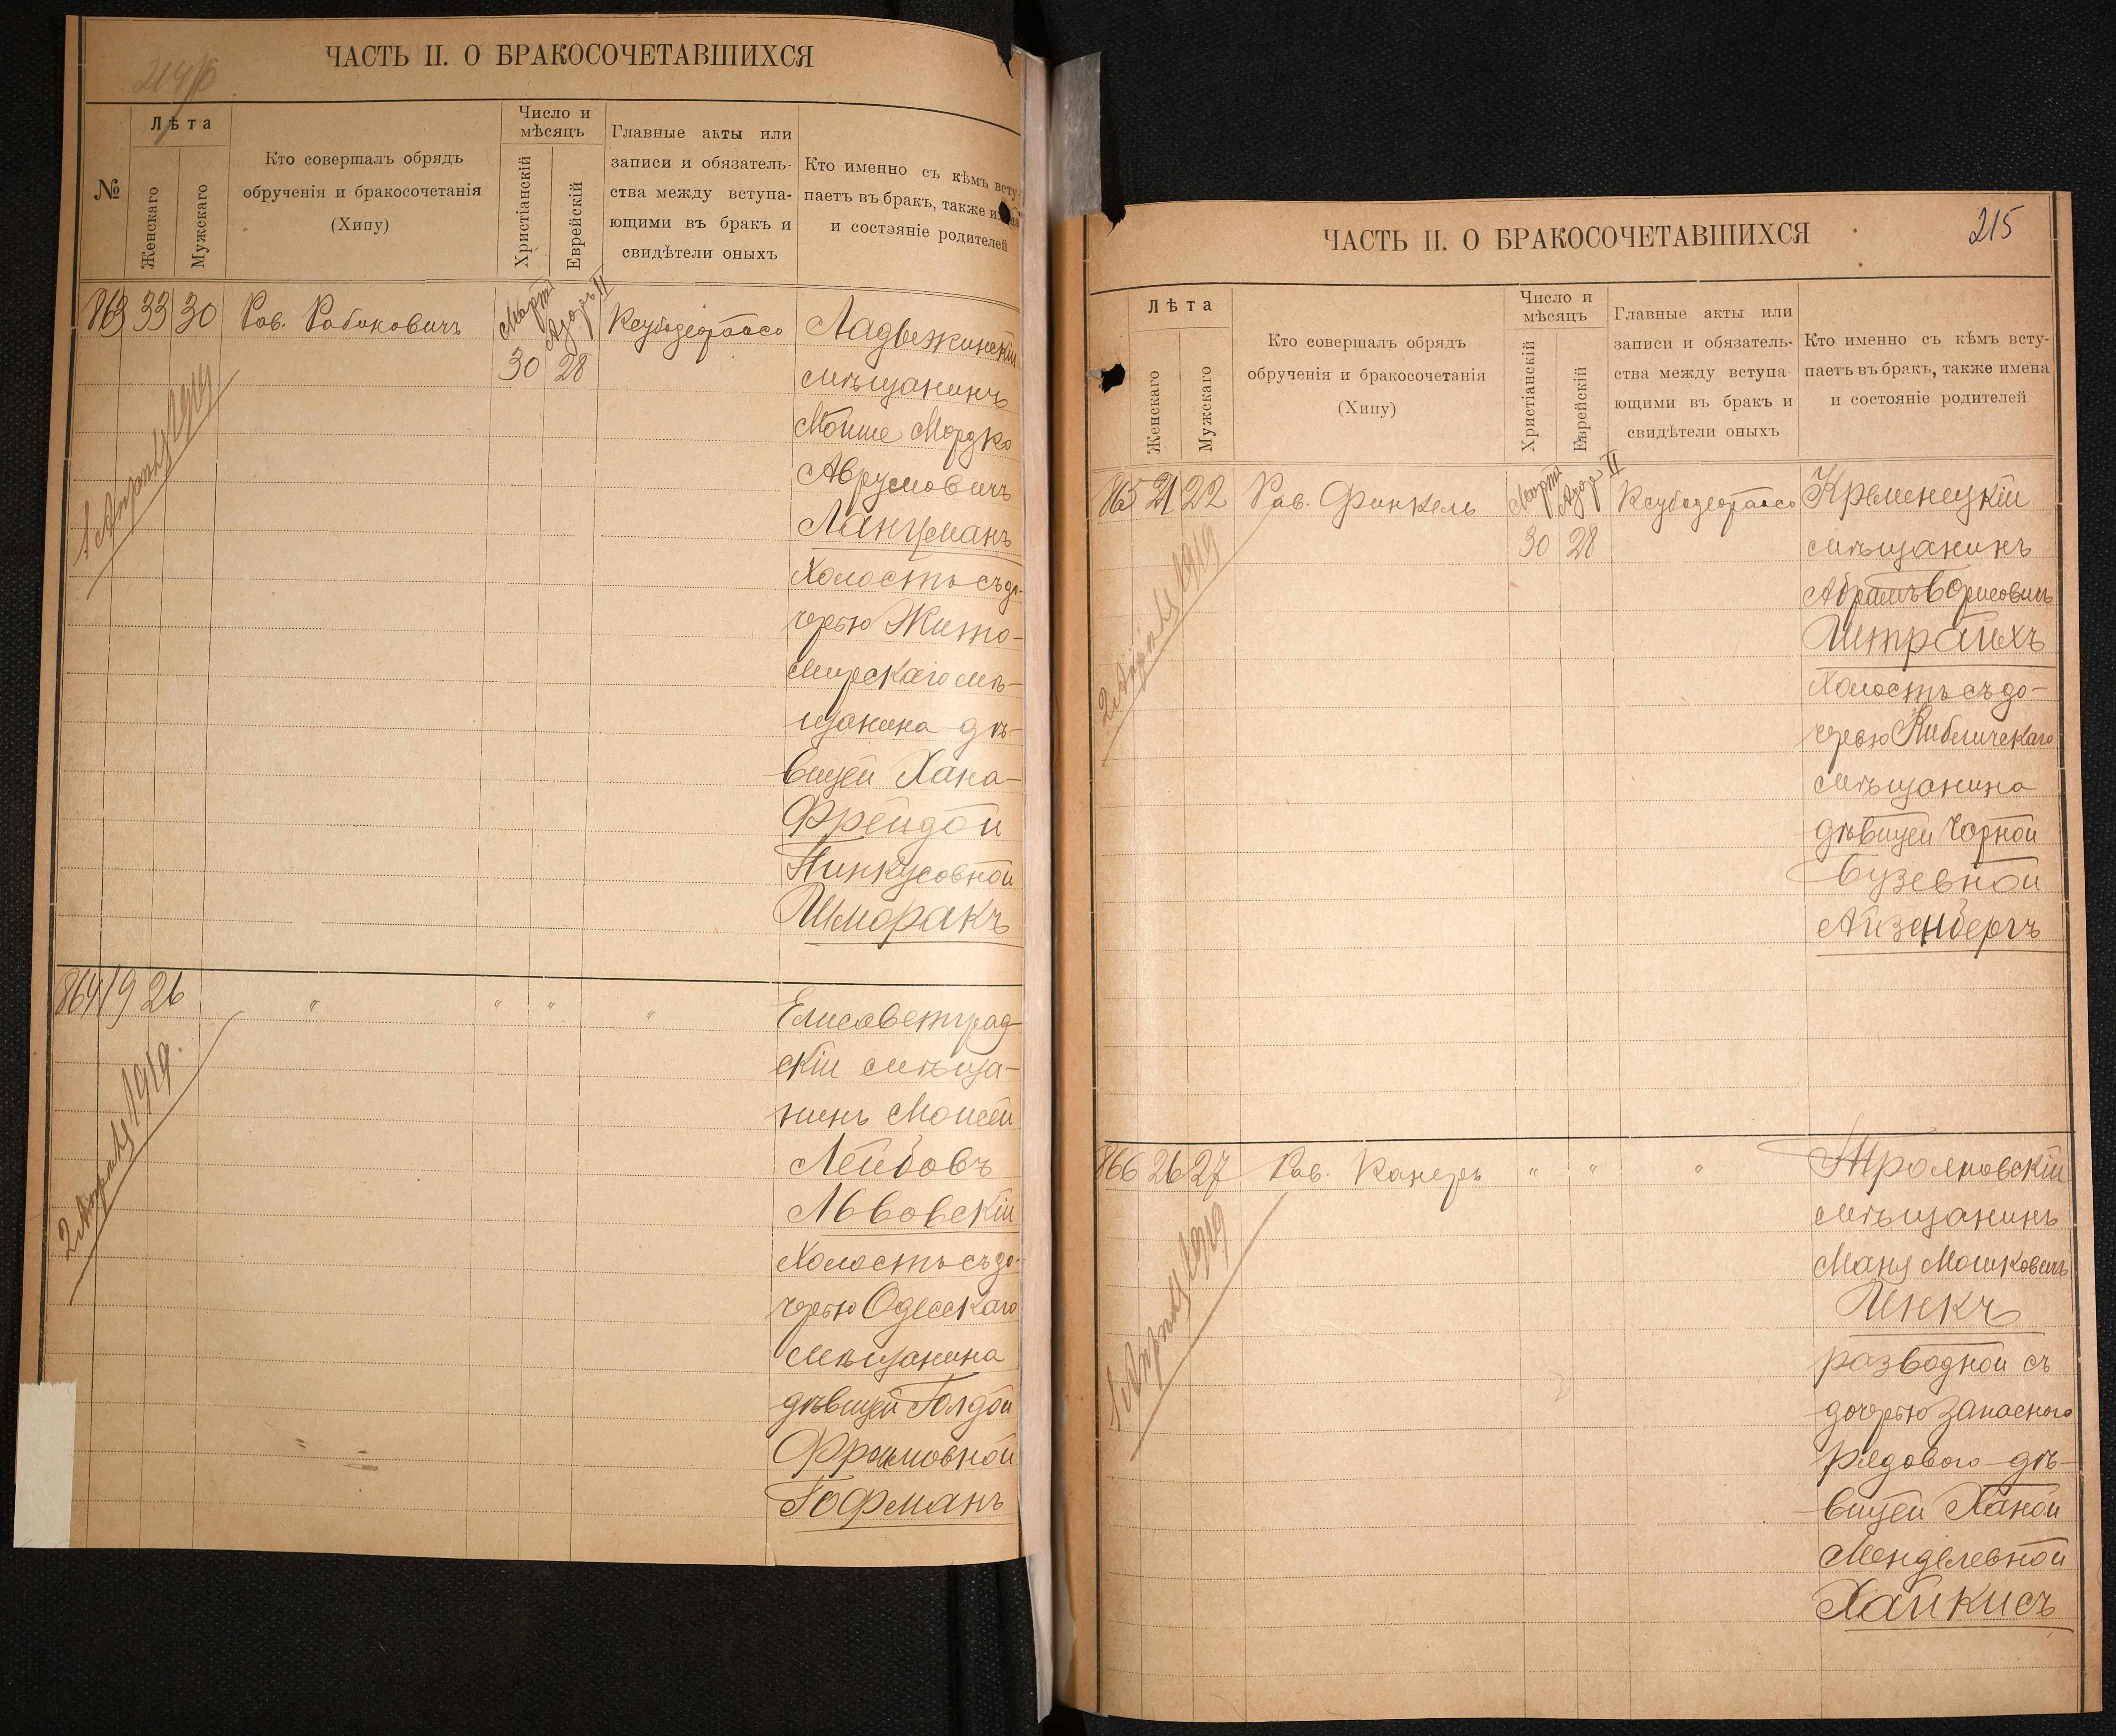 214б
ЧАСТЬ II. О БРАКОСОЧЕТАВШИХСЯ
№
Лѣта
Женскаго
Мужскаго
Кто совершалъ обрядъ
обрученія и бракосочетанія
(Хипу)
Число и
мѣсяцъ
Христіанскій
Еврейскій
Главные акты или
записи и обязатель-
ства между вступа-
ющими въ бракъ и
свидѣтели оныхъ
Кто именно съ кѣмъ всту-
паетъ въ бракъ, также имена
и состэяніе родителей
863 33 30 Рав. Рабиновичъ Мартъ 30 Адаръ II 28
Ладыжинскій
мѣщанинъ
Мойше Мордко
Аврумовичъ
Ланцманъ
холостъ съ до-
черью Жито-
мирскаго мѣ-
щанина дѣ-
вицей Хана-
Фрейдой
Пинкусовной
Шморакъ
1 Апрѣля 1919
864 19 26 " " " "
Елисаветград-
скій мѣща-
нинъ Моисей
Лейбовъ
Львовскій
холостъ съ до-
черью Одесскаго
мѣщанина
дѣвицей Голдой
Фроимовной
Гофманъ
2 Апрѣля 1919
215
ЧАСТЬ II. О БРАКОСОЧЕТАВШИХСЯ
Лѣта
Женскаго
Мужскаго
Кто совершалъ обрядъ
обрученія и бракосочетанія
(Хипу)
Число и
мѣсяцъ
Христіанскій
Еврейскій
Главные акты или
записи и обязатель-
ства между вступа-
ющими въ бракъ и
свидѣтели оныхъ
Кто именно съ кѣмъ всту-
паетъ въ бракъ, также имена
и состояніе родителей
865 21 22 Рав. Финкель Мартъ 30 Адаръ II 28
Кременецкій
мѣщанинъ
Абрамъ Борисовичъ
Штрайхъ
холостъ съ до-
черью Кибличскаго
мѣщанина
дѣвицей Чорной
Бузевной
Айзенбергъ
2 Апрѣля 1919
866 26 27 Рав. Канеръ " " "
мѣщанинъ
Маня Мошковичъ
Инкъ
разводной съ
дочерью запаснаго
рядового дѣ-
вицей Ханой
Менделевной
Хайкисъ
1 Апрѣля 1919